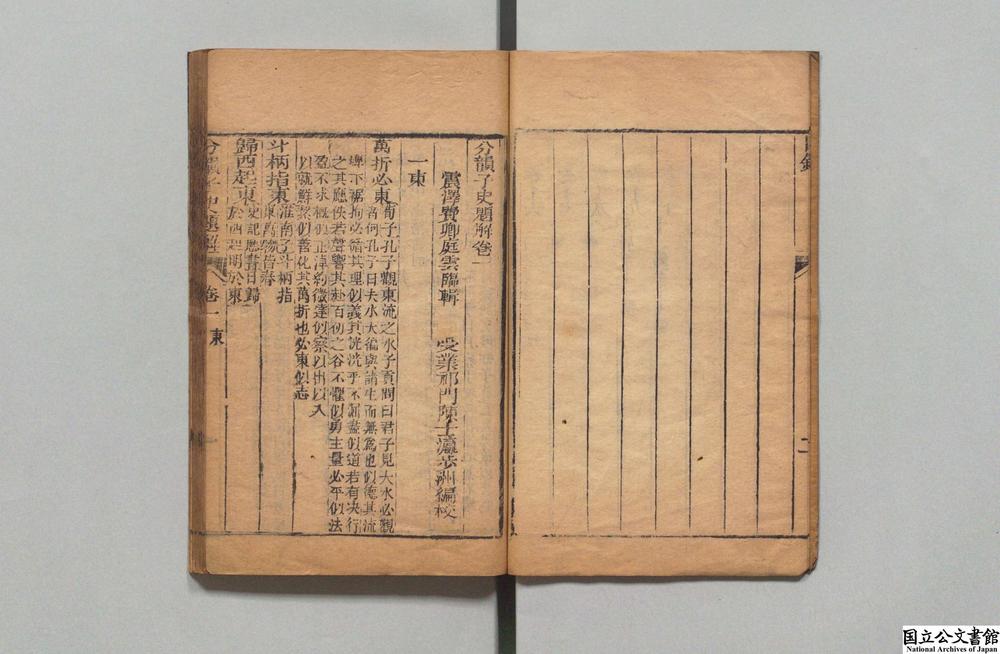 目錄
二
分韻子史題解卷一
震澤費卿庭雲臨輯 受業祁門陳子瀛步洲編校
一東
萬折必東荀子孔子觀東流之水子貢問曰君子見大水必觀
者何孔子曰夫水大徧與諸生而無為也似德其流
埤下裾拘必循其理似義其洸洸乎不淈盡似道若有决行
之其應佚若聲響其赴百仞之谷不懼似勇主量必平似法
盈不求概似正淖約微達似察以出以入
以就鮮絜似善化其萬折也必東似志
斗柄指東淮南子斗柄指
東萬物皆春
歸西起東史記歷書日歸
於西起明於東
分韻子史題解 卷一 東
国立公文書館
National Archives of Japan